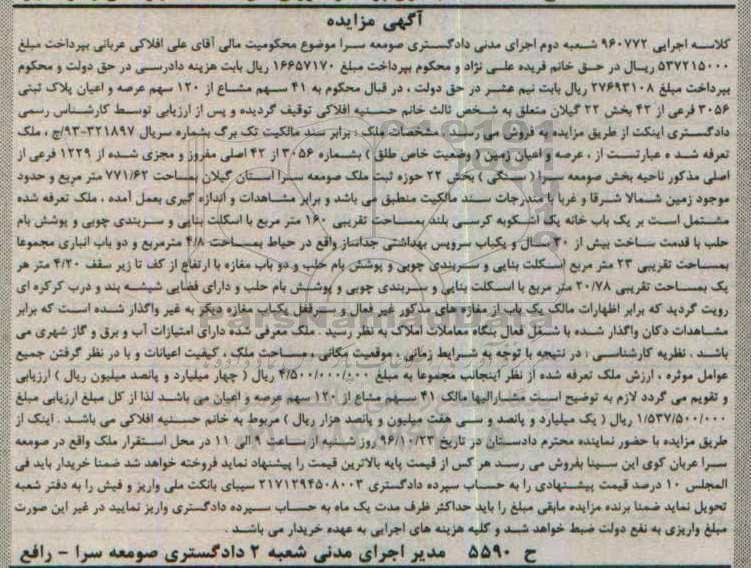 آگهی مزایده
کلاسه اجرایی ۹۶۰۷۷۲ شعبه دوم اجرای مدنی دادگستری صومعه سرا موضوع محکومیت مالی آقای علی افلاکی عربانی بپرداخت مبلغ
۵۳۷۲۱۵۰۰۰ ریال در حق خانم فریده علی نژاد و محکوم بپرداخت مبلغ ۱۶۶۵۷۱۷۰ ریال بابت هزینه دادرسی در حق دولت و محکوم
بپرداخت مبلغ ۲۷۶۹۳۱۰۸ ریال بابت نیم عشر در حق دولت ، در قبال محکوم به ۴۱ سهم مشاع از ۱۲۰ سهم عرصه و اعیان پلاک ثبتی
۳۰۵۶ فرعی از ۴۲ بخش ۲۲ گیلان متعلق به شخص ثالث خانم حسنیه افلاکی توقیف گردیده و پس از ارزیابی توسط کارشناس رسمی
دادگستری اینکت از طریق مزایده به فروش می رسد . مشخصات ملک : برابر سند مالکیت تک برگ بشماره سریال ۹۳-۳۲۱۸۹۷/چ ، ملک
تعرفه شد ه عبارتست از ، عرصه و اعیان زمین ( وضعیت خاص طلق ) بشماره ۳۰۵۶ از ۴۲ اصلی مفروز و مجزی شده از ۱۲۲۹ فرعی از
اصلی مذکور ناحیه بخش صومعه سرا ( سنگی ) بخش ۲۲ حوزه ثبت ملک صومعه سرا استان گیلان بمساحت ۷۷۱/۶۲ متر مربع و حدود
موجود زمین شمالا شرقا و غربا با مندرجات سند مالکیت منطبق می باشد و برابر مشاهدات و اندازه گیری بعمل آمده ، ملک تعرفه شده
مشتمل است بر یک باب خانه یک اشکوبه کرسی بلند بمساحت تقریبی ۱۶۰ متر مربع با اسکلت بنایی و سربندی چوبی و پوشش بام
حلب با قدمت ساخت بیش از ۳۰ سال و یکباب سرویس بهداشتی جداساز واقع در حیاط بمساحت ۴/۸ مترمربع و دو باب انباری مجموعا
بمساحت تقریبی ۲۳ متر مربع اسکلت بنایی و سربندی چوبی و پوشش بام حلب و دو باب مغازه با ارتفاع از کف تا زیر سقف ۴/۲۰ متر هر
یک بمساحت تقریبی ۲۰/۷۸ متر مربع با اسکلت بنایی و سربندی چوبی و پوشش بام حلب و دارای فضایی شیشه بند و درب کرکره ای
رویت گردید که برابر اظهارات مالک یک باب از مغازه های مذکور غیر فعال و سرقفل یکباب مغازه دیگر به غیر واگذار شده است که برابر
مشاهدات دکان واگذار شده با شغل فعال بنگاه معاملات املاک به نظر رسید . ملک معرفی شده دارای امتیازات آب و برق و گاز شهری می
باشد . نظریه کارشناسی : در نتیجه با توجه به شرایط زمانی ، موقعیت مکانی ، مساحت ملک ، کیفیت اعیانات و با در نظر گرفتن جمیع
عوامل موثره ، ارزش ملک تعرفه شده از نظر اینجانب مجموعا به مبلغ ۴/۵۰۰/۰۰۰/۰۰۰ ریال ( چهار میلیارد و پانصد میلیون ریال ) ارزیابی
و تقویم می گردد لازم به توضیح است مشارالیها مالک ۴۱ سهم مشاع از ۱۲۰ سهم عرصه و اعیان می باشد لذا از کل مبلغ ارزیابی مبلغ
۱/۵۳۷/۵۰۰/۰۰۰ ریال ( یک میلیارد و پانصد و سی هفت میلیون و پانصد هزار ریال ) مربوط به خانم حسنیه افلاکی می باشد . اینک از
طریق مزایده با حضور نماینده محترم دادستان در تاریخ ۹۶/۱۰/۲۳ روز شنبه از ساعت ۹ الی ۱۱ در محل استقرار ملک واقع در صومعه
سرا عربان کوی ابن سینا بفروش می رسد هر کس از قیمت پایه بالاترین قیمت را پیشنهاد نماید فروخته خواهد شد ضمنا خریدار باید فی
المجلس ۱۰ درصد قیمت پیشنهادی را به حساب سپرده دادگستری ۲۱۷۱۲۹۴۵۰۸۰۰۳ سیبای بانکت ملی واریز و فیش را به دفتر شعبه
تحویل نماید ضمنا برنده مزایده مابقی مبلغ را باید حداکثر ظرف مدت یک ماه به حساب سپرده دادگستری واریز نمایید در غیر این صورت
مبلغ واریزی به نفع دولت ضبط خواهد شد و کلیه هزینه های اجرایی به عهده خریدار می باشد .
ح ۵۵۹۰ مدیر اجرای مدنی شعبه ۲ دادگستری صومعه سرا - رافع